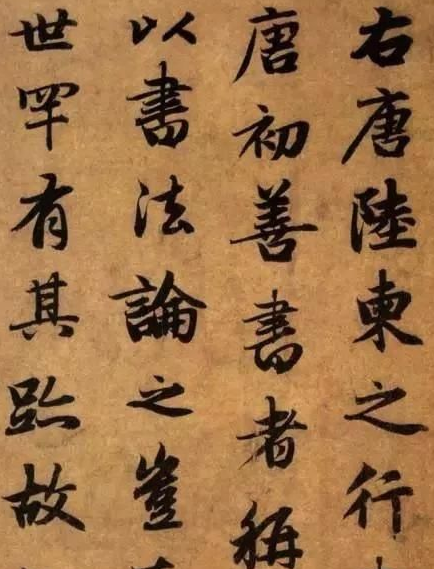 右唐陸柬之行
唐初善書者稱
以書法論之豈
世罕有其跡故